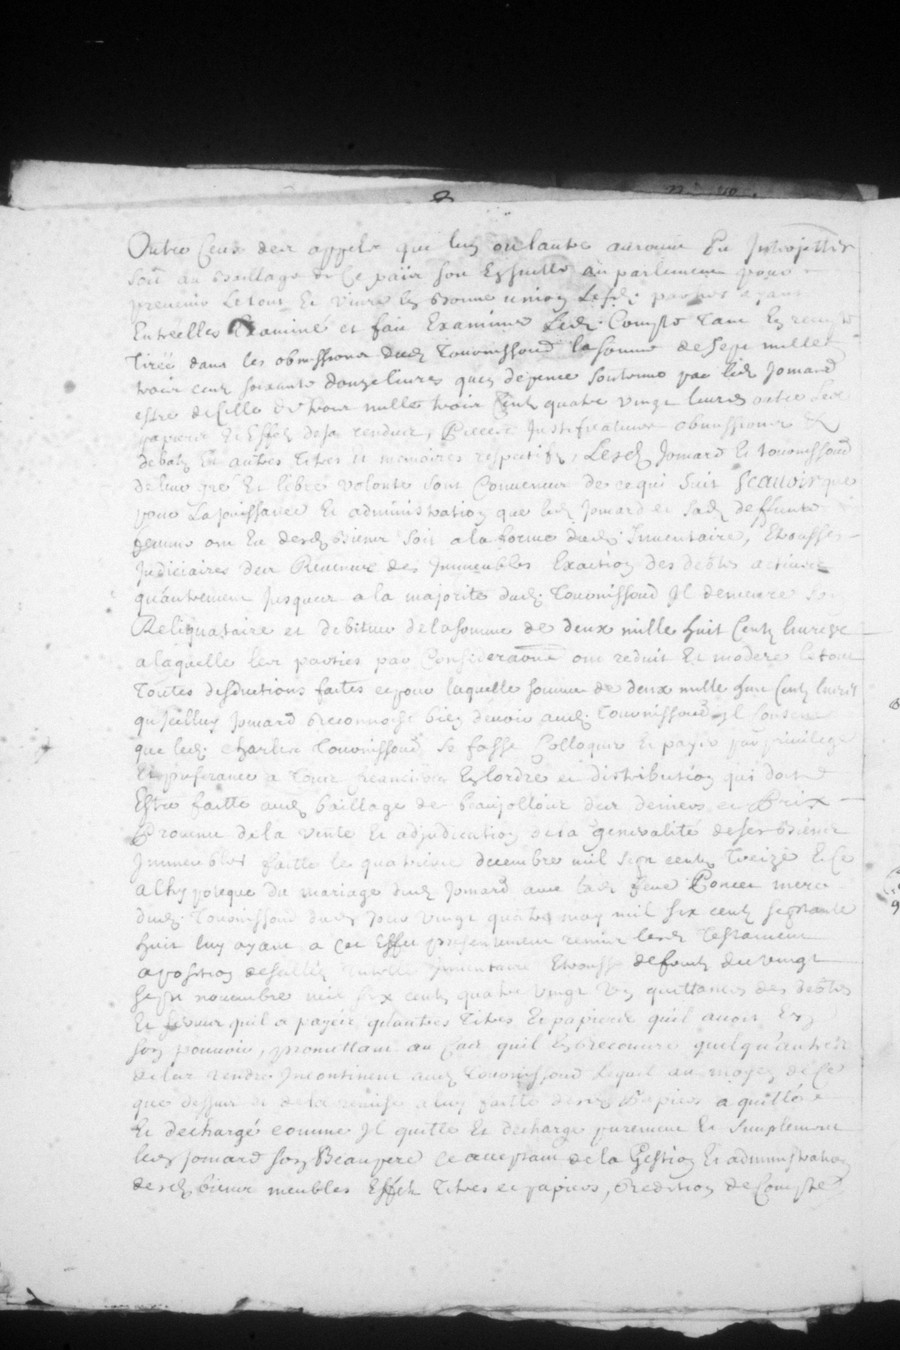 Outre Ceux des appels que lun ou lautre auroient Eu Interjettés
soit au Baillage de Ce païs soit Ensuitte au parlement pour
prevenir Letout Et vivre En bonne union Lesd: parties ayant
Entreelles Examiné et fait Examiner Led: Compte tant En recepte
tirée dans les obmissions dud: Tournissoud la somme de Sept mille
trois cent soixante douze livres quen depence soutenue par led Jomard
estre de Celle de trois mille trois Cent quatre vingt livres outre Les
papiers Et Effets desja rendues, Pieces Justificatives obmissions
debats Et autres titres Et memoires respectifs, Lesd Jomard Et tournissoud
de leur gre Et libre volonte sont Convenus de ce qui suit Scavoir que
pour La Jouissance Et administration que led Jomard et sad deffunte
femme ont Eu desd biens soit a la forme dud: Inventaire, Etrousses
Judiciaires des Revenus des Immeubles Exaction des debtes actives
quautrement Jusques a la majorité dud: Tournissoud Il demeure
Reliquataire et debiteur de la somme de deux mille huit Cents livres
a laquelle les parties par Consideration ont reduit Et modere le tout
toutes desductions faites et pour laquelle somme de deux mille huit Cents livres
quicelluy Jomard Reconnoist bien devoir aud: Tournissoud Il Consent
que led: Charles Tournissoud Se fasse Colloquer Et payer par privilege
Et preferance a tous Creanciers En lordre et distribution qui doit
Estre faitte aud baillage de beaujollois des deniers et Prix
Provenu de la vente Et adjudication de la generalité de ses Biens
Immeubles faitte le quatrieme decembre mil sept cents treize Et Ce
a lhypoteque du mariage dud Jomard avec lad feue Poncet mere
dud: Tournissoud dud Jour vingt quatre may mil six cents septante
huit luy ayant a Cet Effet presentement remis lesd Testament
aposition de sellés tutelle Inventaire Etrousse defonds du vingt
sept novembre mil six cents quatre vingt quittances des debtes
Et qu'il a payée qu'autres titres Et papiers quil avoit En
son pouvoir, promettant au Cas quil En recouvre quelqu'autres
de les rendre Incontinent aud Tournissoud Lequel au moyen de Ce
que dessus Et de la remise a luy faitte desd papiers a quitté
Et dechargé comme Il quitte Et decharge purement Et Simplement
led Jomard son Beaupere Ce acceptant de la Gestion Et administration
desd biens meubles Effets titres et papiers, Reddition de Compte